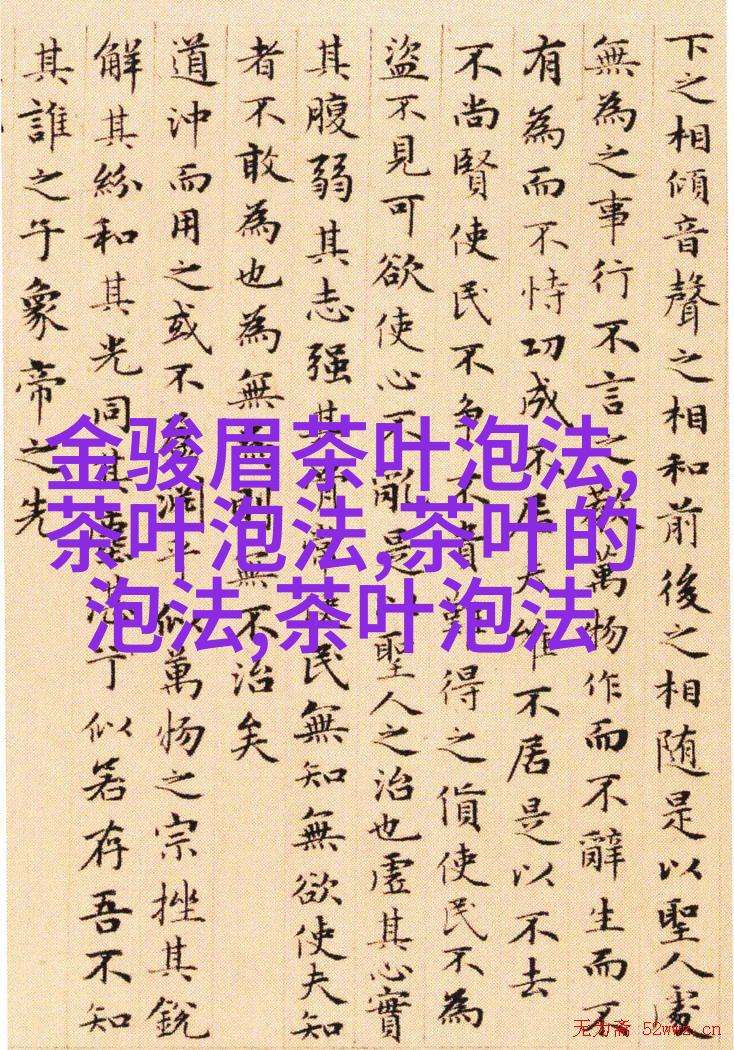 下之相傾音聲之相和前後之相随是以聖人處
無為之事行不言之教萬物作而不辭生而不
有為而不恃功成不居夫唯不居是以不去
不尚賢使民不争不貴難得之貨使民不為
盜不見可欲使心不亂是以聖人之治也虛其心實
其腹弱其志强其骨常使民無知無欲使夫知
者不敢為也為無為則無不治矣
道沖而用之或不盈淵乎似萬物之宗挫其銳
解其紛和其光同其塵湛兮似若存吾不知
其誰之子象帝之先
金骏眉茶叶泡法,
茶叶泡法,茶叶的
泡法,茶叶泡法
无为斋 52wwz.cn